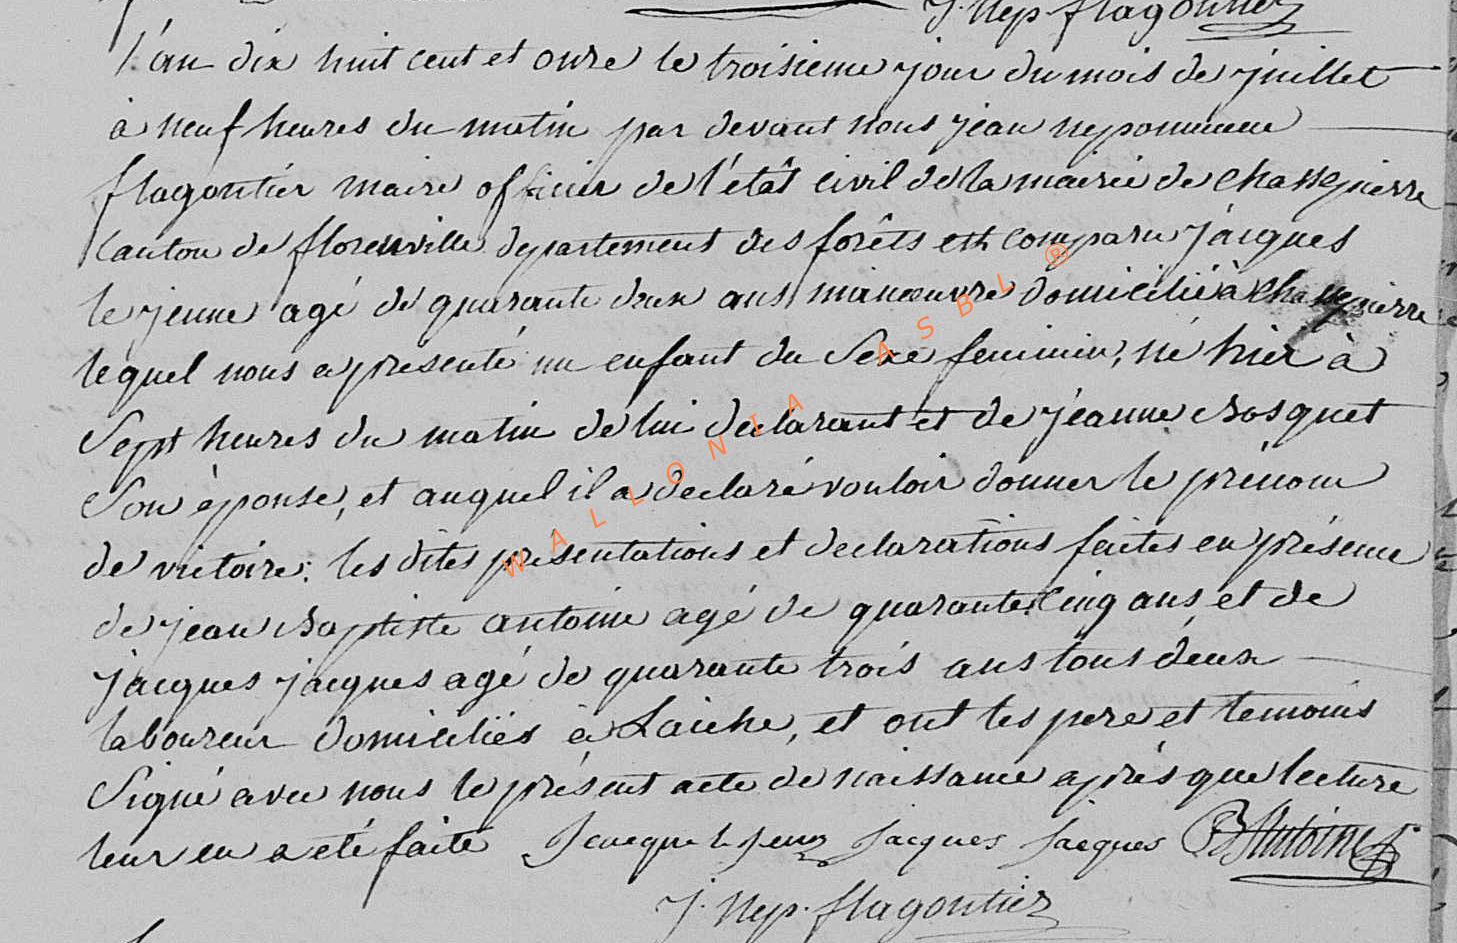 J. Nep. flagontier
l'an dix huit cent et onze le troisieme jour du mois de juillet
à neuf heures du matin par devant nous jean nepomucene
flagontier maire officier de l'êtat civil de la mairie de chassepierre
Canton de florenville departement des forêts est comparu jacques
le jeune agé de quarante deux ans manœuvre domicilié à chassepierre
lequel nous a presenté un enfant du Sexe feminin, né hier à
Sept heures du matin de lui declarant et de jeanne Bosquet
Son épouse, et auquel il a declaré vouloir donner le prénom
de victoire: les dites présentations et declarations faites en présence
de jean Baptiste antoine agé de quarante cinq ans et de
jacques jacques agé de quarante trois ans tous deux
laboureur domiciliés à Laiche, et ont les pere et temoins
Signé avec nous le présent acte de naissance aprés que lecture
leur en a eté faite Jacque le jeune Jacques Jacques JB Antoine
J. Nep. flagontier
WALLONIA ASBL ®